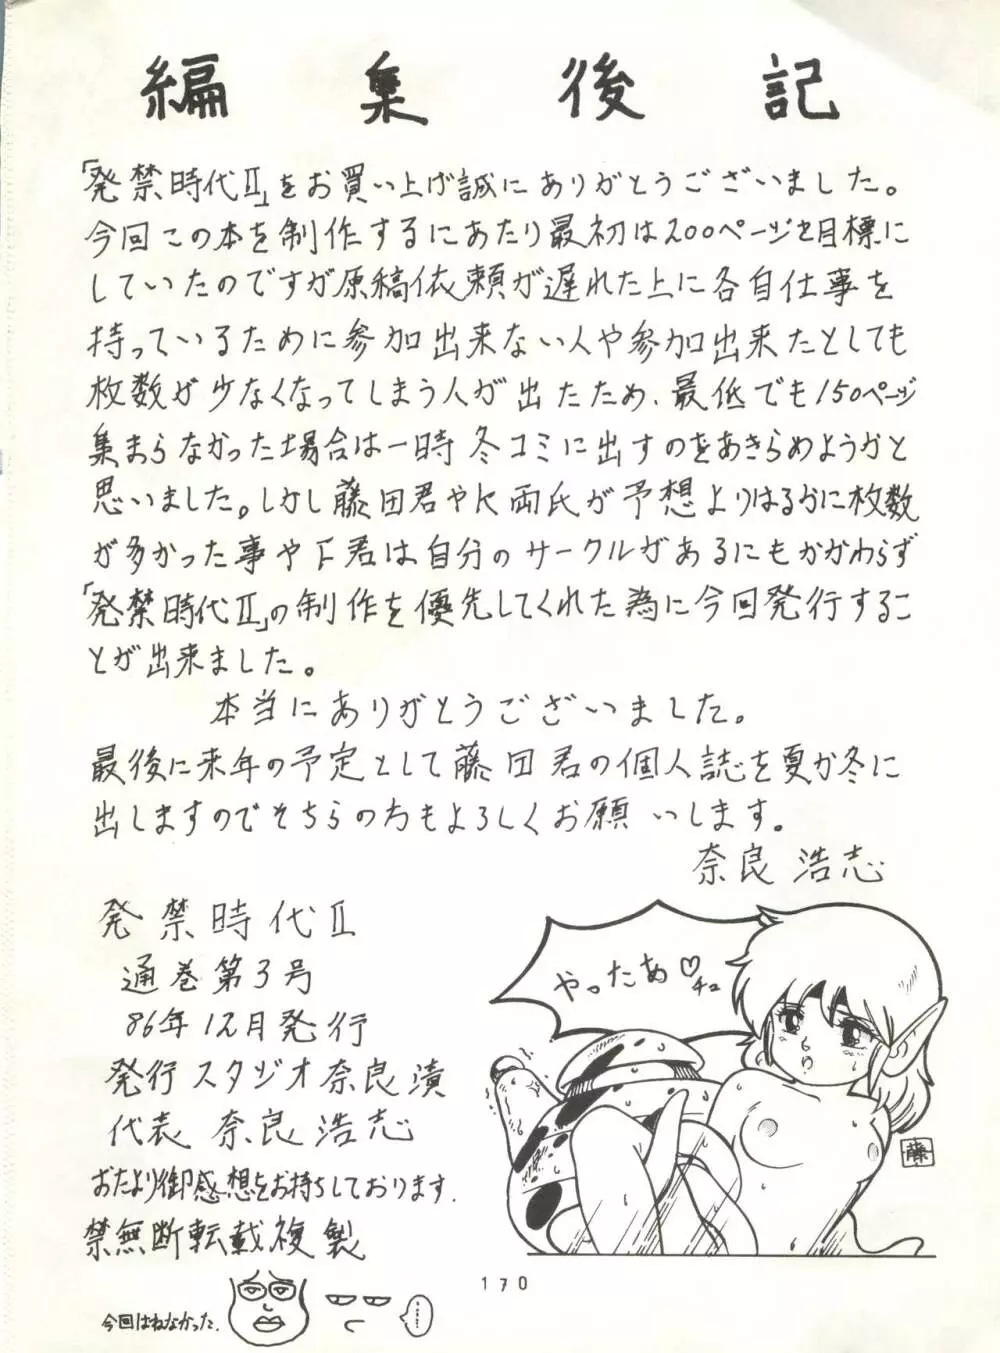 編集後記
「発禁時代Ⅱ」をお買い上げ誠にありがとうございました。
今回この本を制作するにあたり最初は200ページを目標に
していたのですが原稿依頼が遅れた上に各自仕事を
持っているために参加出来ない人や参加出来たとしても
枚数が少なくなってしまう人が出たため、最低でも150ページ
集まらなかった場合は一時冬コミに出すのをあきらめようかと
思いました。しかし藤田君やK両氏が予想よりはるかに枚数
が多かった事やF君は自分のサークルがあるにもかかわらず
「発禁時代Ⅱ」の制作を優先してくれた為に今回発行するこ
とが出来ました。
本当にありがとうございました。
最後に来年の予定として藤田君の個人誌を夏か冬に
出しますのでそちらの方もよろしくお願いします。
奈良浩志
発禁時代Ⅱ
通巻第3号
86年12月発行
発行スタジオ奈良漬
代表 奈良浩志
おたより御感想をお持ちしております.
禁無断転載複製
やったぁ♡チュ
藤
170
今回はねなかった.